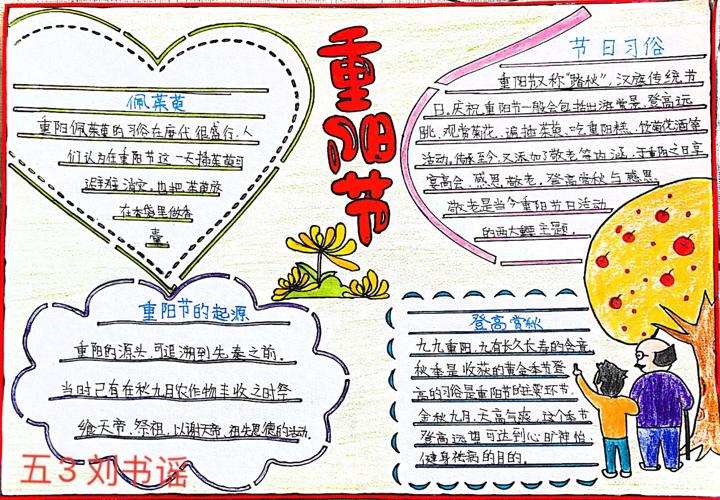 重阳节
佩茱萸
重阳佩茱萸的习俗在唐代很盛行,人
们认为在重阳节这一天插茱萸可
避难消灾,也把茱萸放
在布袋里做香
囊。
节日习俗
重阳节又称“踏秋”,汉族传统节
日。庆祝重阳节一般会包括出游赏景、登高远
眺、观赏菊花、遍插茱萸、吃重阳糕、饮菊花酒等
活动,传承至今,又添加了敬老等内涵,于重阳之日享
宴高会,感恩敬老。登高赏秋与感恩
敬老是当今重阳节日活动
的两大主题。
重阳节的起源
重阳的源头,可追溯到先秦之前。
当时已有在秋九月农作物丰收之时祭
飨天帝、祭祖,以谢天帝、祖先恩德的活动。
登高赏秋
九九重阳,九有长久长寿的含意,
秋季是收获的黄金季节登
高的习俗是重阳节的主要环节,
金秋九月,天高气爽,这个季节
登高远望可达到心旷神怡、
健身祛病的目的。
五3刘书谣